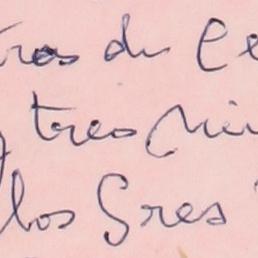 tros de Ce
tres Min
los Sres